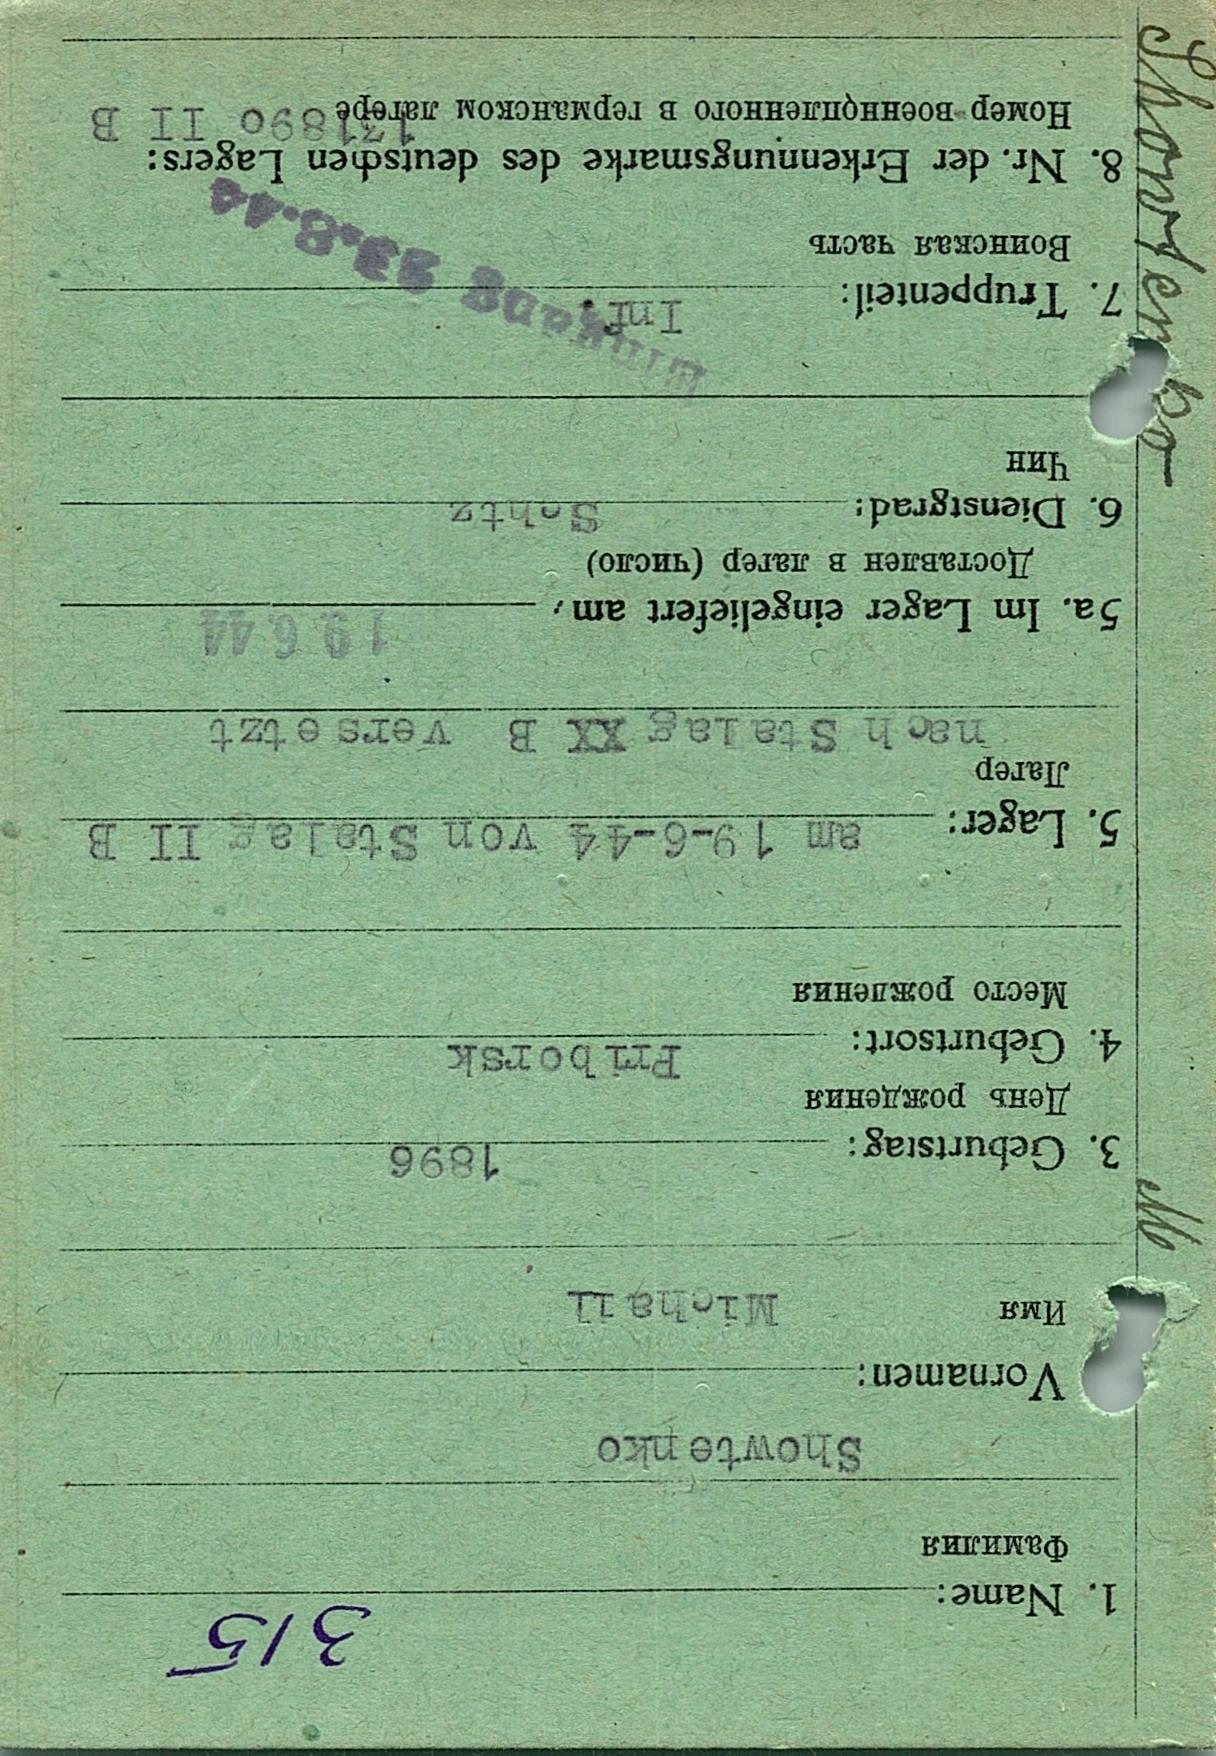 315
1. Name:
Фамилия
Showtenko
Vornamen:
Имя
Michail
3. Geburtstag: 1896
День рождения
4. Geburtsort: Priborsk
Место рождения
5. Lager: am 19-6-44 von Stalag II B
Лагер
nach Stalag XX B versetzt
5a. Im Lager eingeliefert am: 19 6 44
Доставлен в лагер (число)
6. Dienstgrad: Schtz
Чин
7. Truppenteil: Inf.
Воинская часть
Eingang 23.8.44
8. Nr. der Erkennungsmarke des deutschen Lagers:
Номер военнопленного в германском лагере 171890 II B